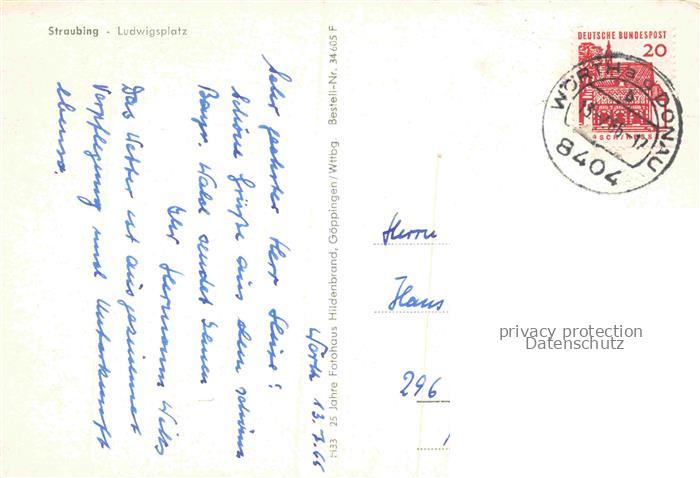 Straubing - Ludwigsplatz
Wörth 13.7.66
Sehr geehrter Herr
Schöne Grüße aus dem schönen
Bayr. Wald sendet Ihnen
Ihr Hermann
Das Wetter ist ausgezeichnet
Verpflegung und Unterkunft
ebenso.
H33 25 Jahre Fotohaus Hildenbrand, Göppingen/Wttbg. Bestell-Nr. 34605 F
DEUTSCHE BUNDESPOST
20
WÖRTH a.d. DONAU
8404
Herrn
Hans
296
privacy protection
Datenschutz